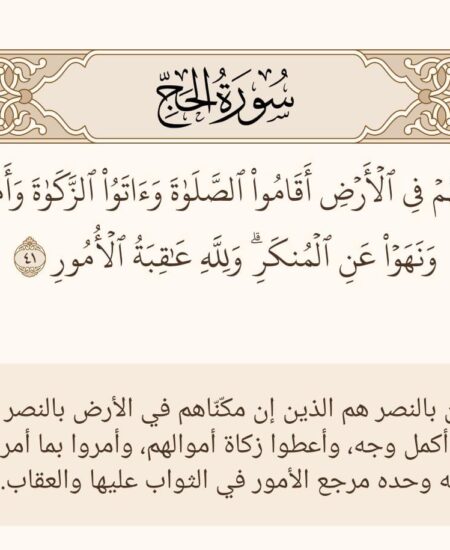 سُورَةُ الحَجِّ
فِي ٱلۡأَرۡضِ أَقَامُواْ ٱلصَّلَوٰةَ وَءَاتَوُاْ ٱلزَّكَوٰةَ
وَنَهَوۡاْ عَنِ ٱلۡمُنكَرِۗ وَلِلَّهِ عَٰقِبَةُ ٱلۡأُمُورِ ٤١
بالنصر هم الذين إن مكنّاهم في الأرض بالنصر
أكمل وجه، وأعطوا زكاة أموالهم، وأمروا بما أمر
وحده مرجع الأمور في الثواب عليها والعقاب.